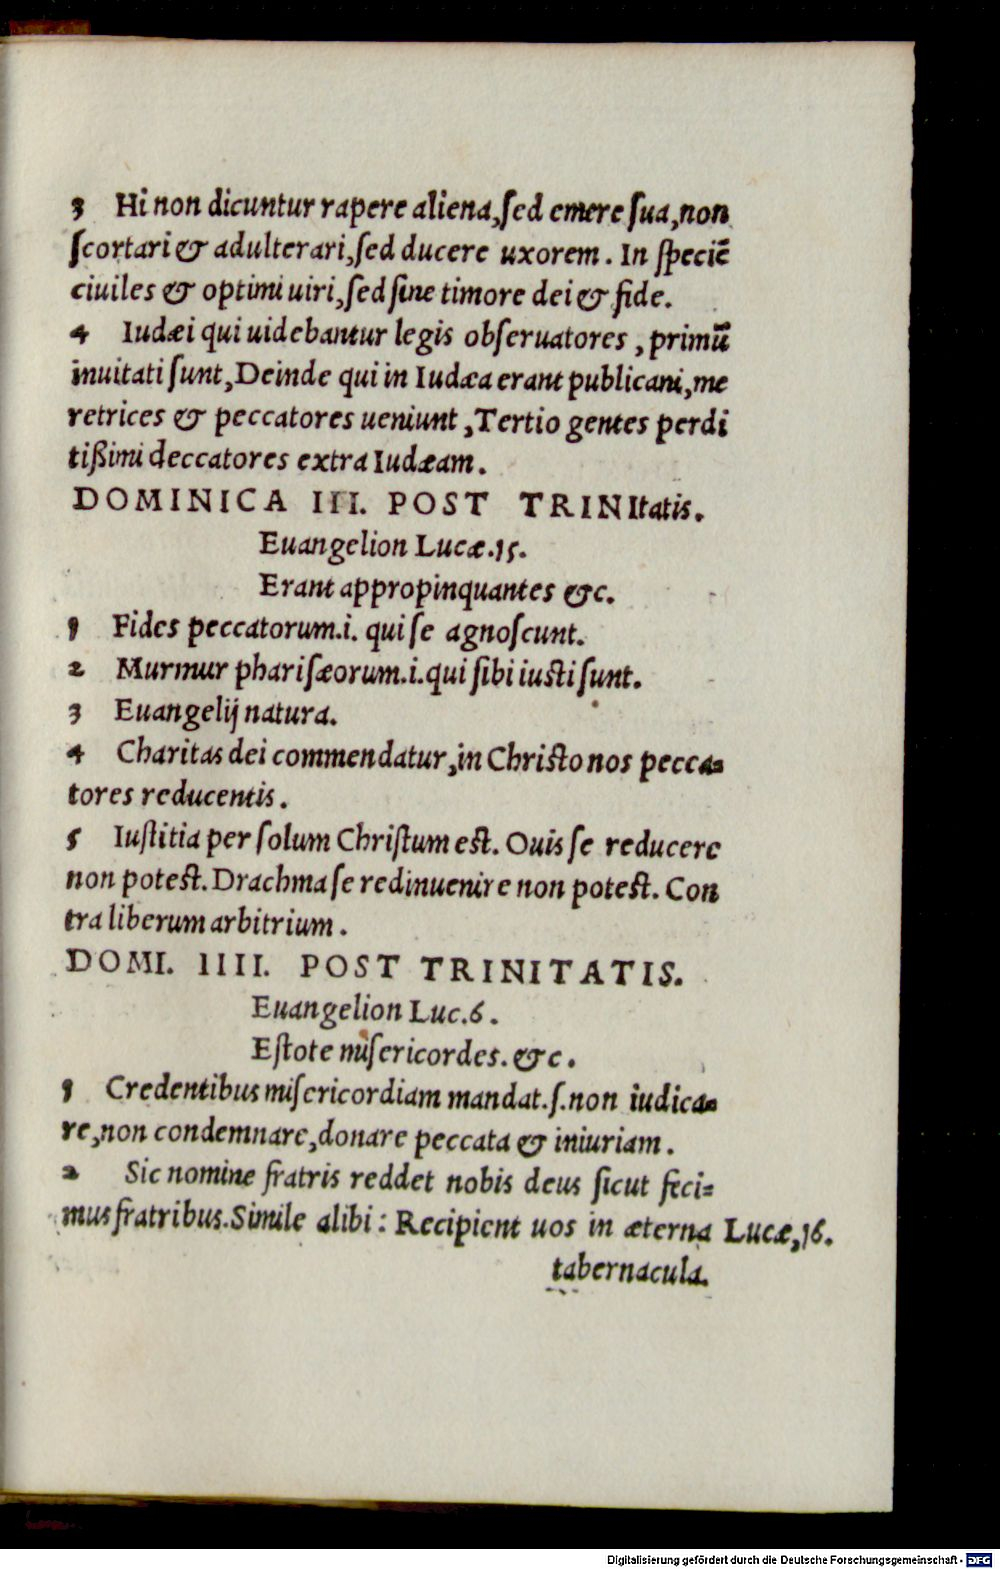 3 Hi non dicuntur rapere aliena,ſed emere ſua,non
ſcortari & adulterari,ſed ducere uxorem. In ſpeciē
ciuiles & optimi uiri,ſed ſine timore dei & fide.
4 Iudæi qui uidebantur legis obſeruatores , primū
inuitati ſunt,Deinde qui in Iudæa erant publicani,me
retrices & peccatores ueniunt ,Tertio gentes perdi
tißimi deccatores extra Iudæam.
DOMINICA III. POST TRINItatis.
Euangelion Lucæ.15.
Erant appropinquantes &c.
1 Fides peccatorum.i. qui ſe agnoſcunt.
2 Murmur phariſæorum.i.qui ſibi iusti ſunt.
3 Euangelij natura.
4 Charitas dei commendatur,in Christo nos pecca=
tores reducentis.
5 Iuſtitia per ſolum Chriſtum est. Ouis ſe reducere
non potest. Drachma ſe redinuenire non potest. Con
tra liberum arbitrium.
DOMI. IIII. POST TRINITATIS.
Euangelion Luc.6.
Eſtote miſericordes. &c.
1 Credentibus miſericordiam mandat.ſ.non iudica=
re,non condemnare,donare peccata & iniuriam.
2 Sic nomine fratris reddet nobis deus ſicut feci=
mus fratribus.Simile alibi: Recipient uos in æterna Lucæ,16.
tabernacula.
Digitalisierung gefördert durch die Deutsche Forschungsgemeinschaft - DFG